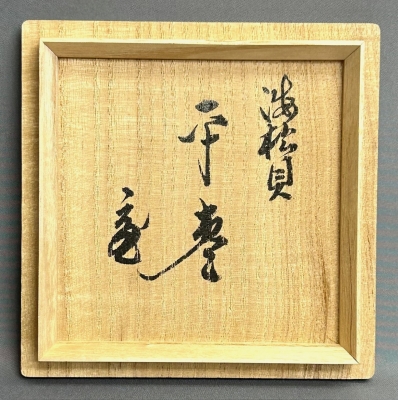 海松貝
平棗